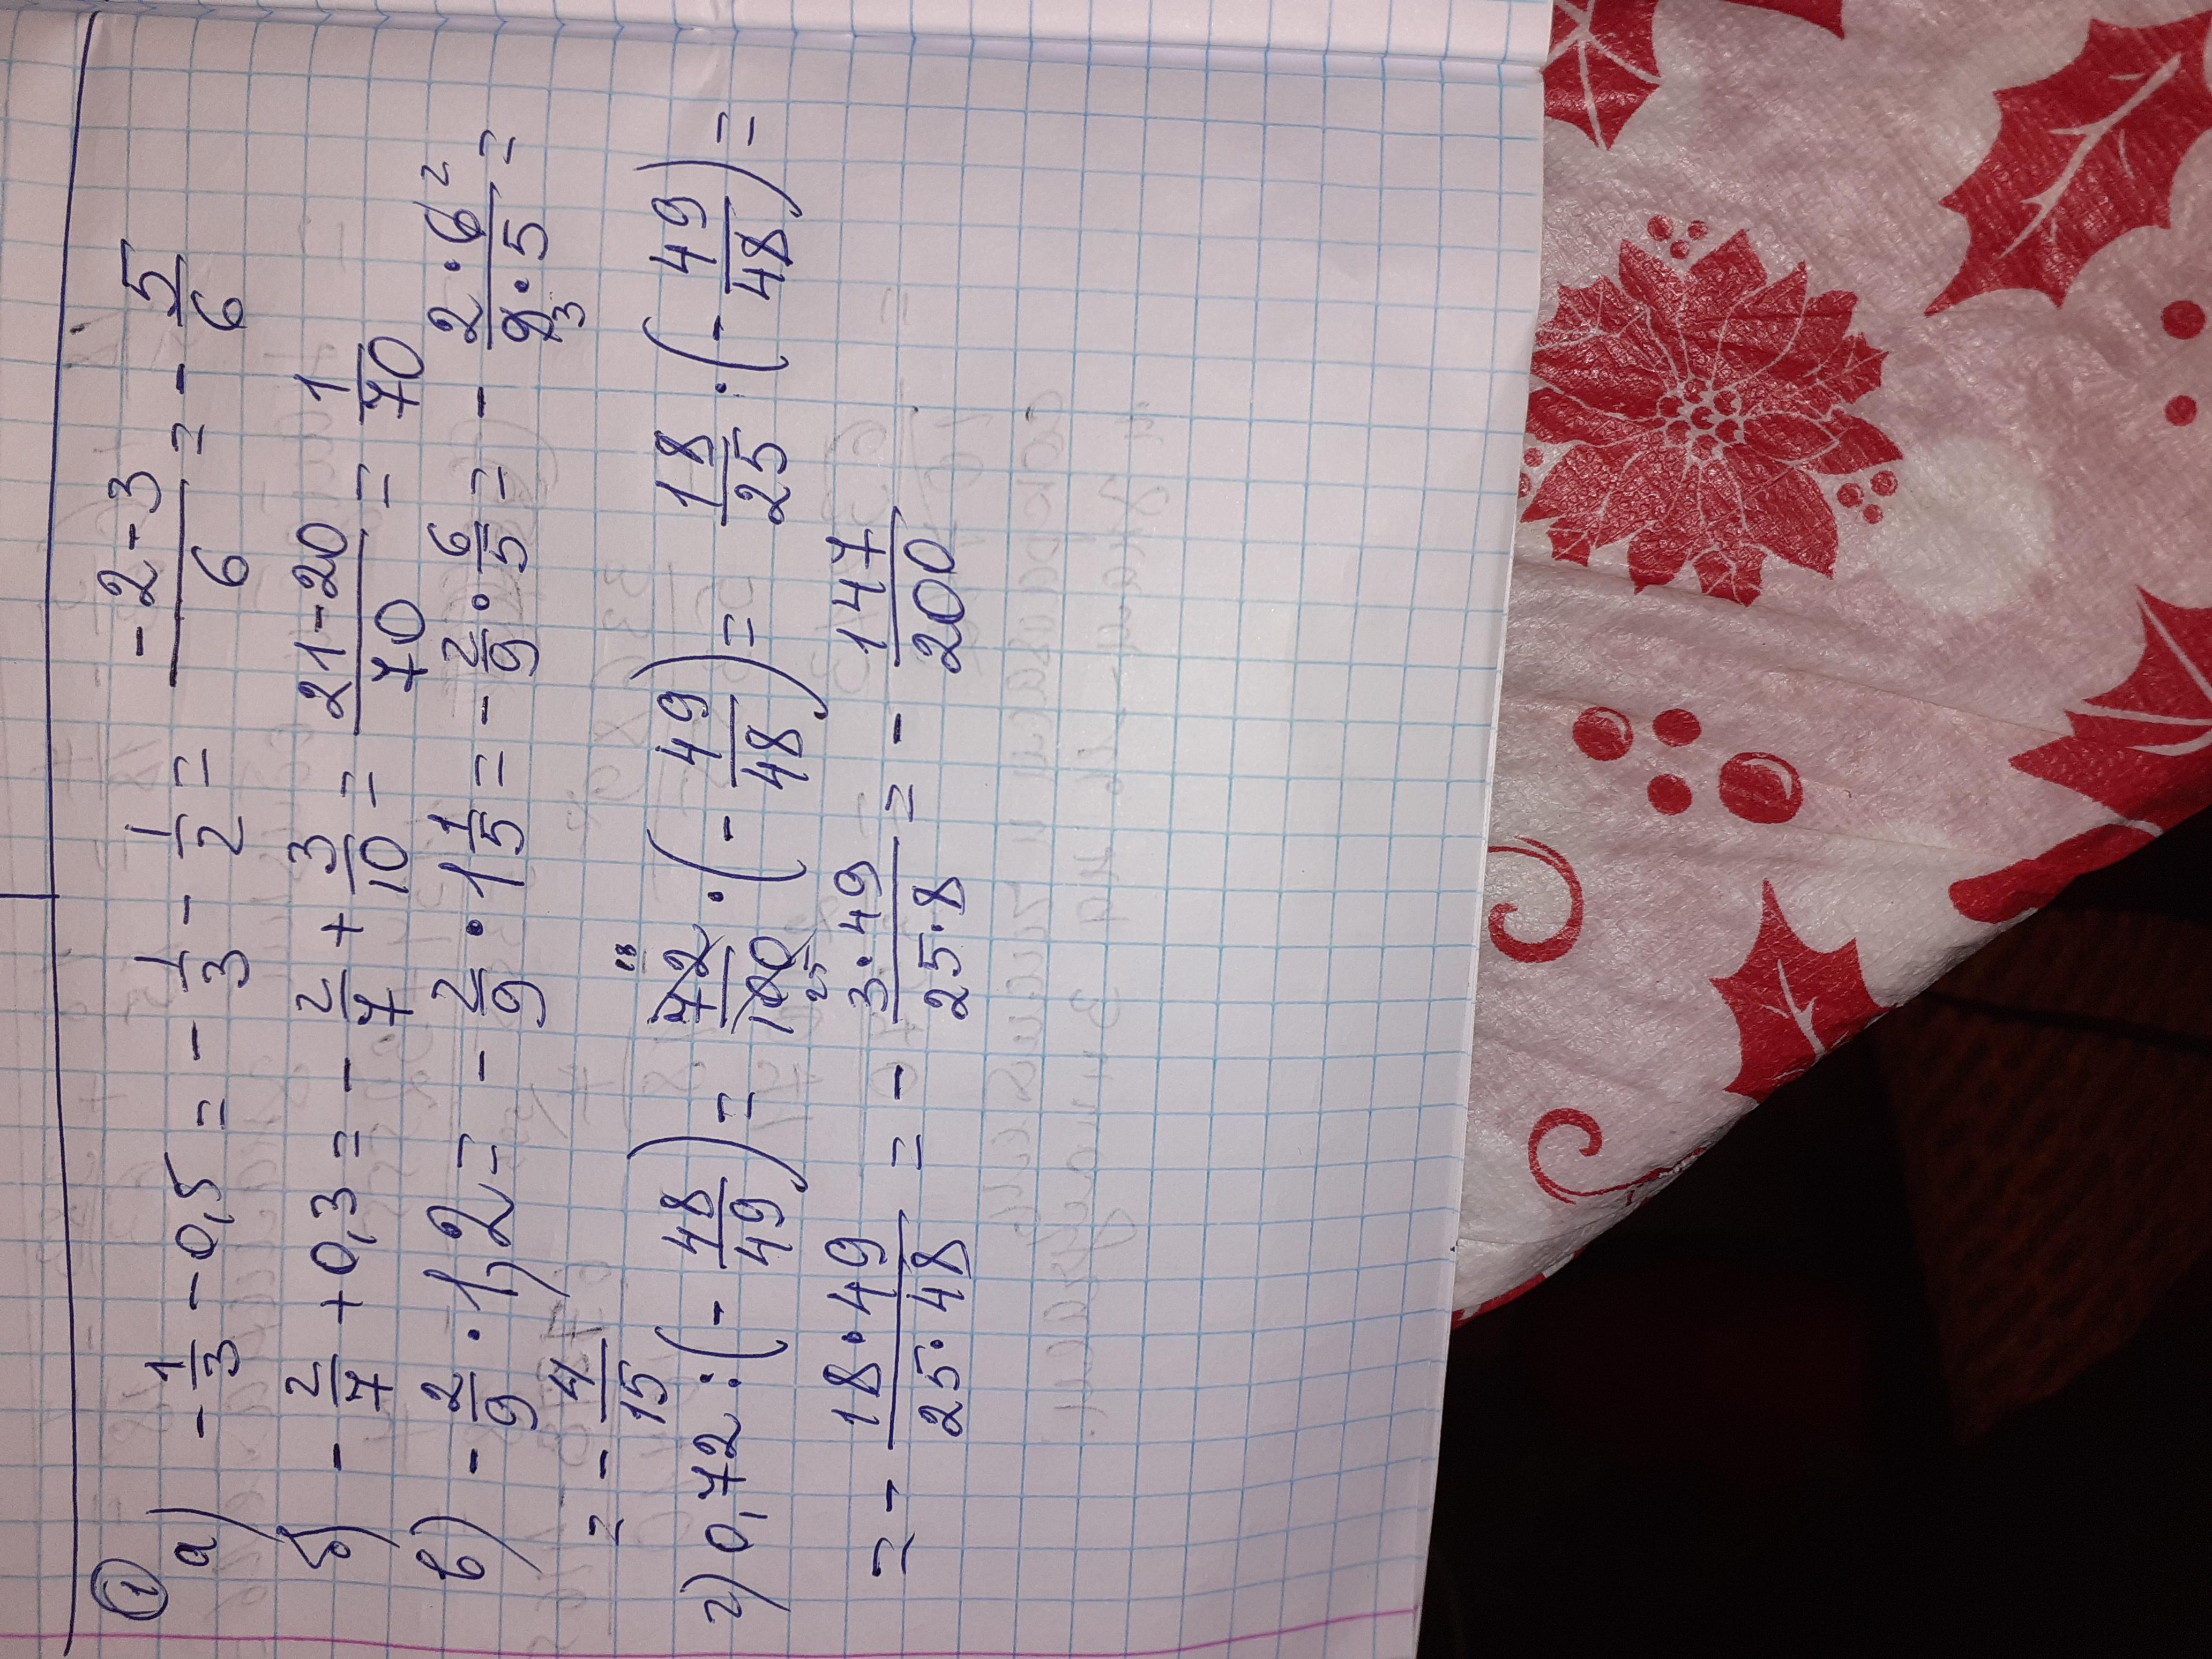 ①
а) -1/3 - 0,5 = -1/3 - 1/2 = (-2-3)/6 = -5/6
б) -2/7 + 0,3 = -2/7 + 3/10 = (21-20)/70 = 1/70
в) -2/9 · 1,2 = -2/9 · 1 1/5 = -2/9 · 6/5 = - (2 · 6 2)/(9 3 · 5) =
= -4/15
г) 0,72 : (-48/49) = 72 18/100 25 · (-49/48) = 18/25 : (-49/48) =
= - (18 · 49)/(25 · 48) = - (3 · 49)/(25 · 8) = - 147/200